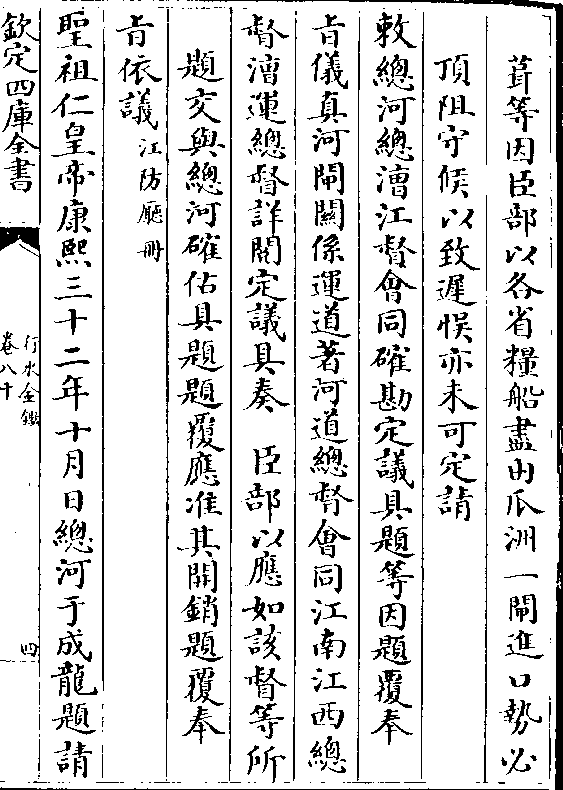 葺等因臣部以各省糧船盡由瓜洲一閘進口勢必
頂阻守候以致遲悞亦未可定請
敕總河總漕江督會同確勘定議具題等因題覆奉
旨儀真河閘關係運道著河道總督會同江南江西總
督漕運總督詳閱定議具奏　臣部以應如該督等所
題交與總河確估具題題覆應准其開銷題覆奉
旨依議江防廳冊
聖祖仁皇帝康熙三十二年十月日總河于成龍題請
欽定四庫全書
行水金鑑
卷八十
四